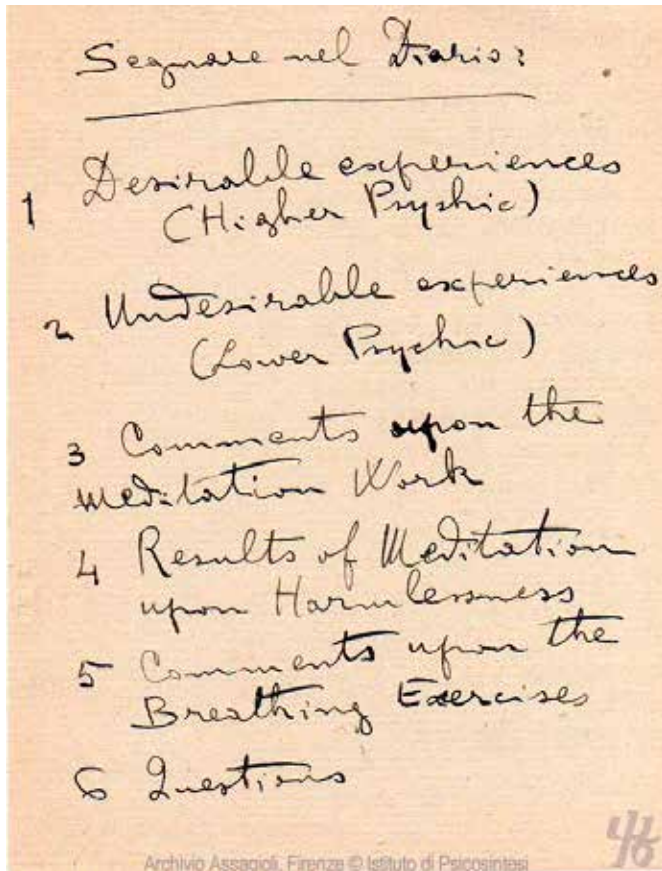 Segnare nel Diario:
1 Desirable experiences
(Higher Psychic)
2 Undesirable experiences
(Lower Psychic)
3 Comments upon the
Meditation Work
4 Results of Meditation
upon Harmlessness
5 Comments upon the
Breathing Exercises
6 Questions
Archivio Assagioli, Firenze © Istituto di Psicosintesi